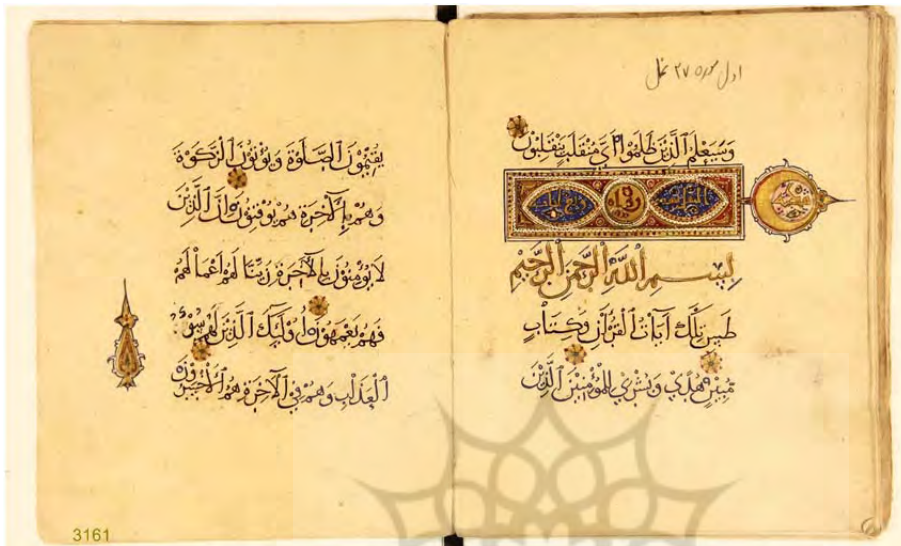 اول سوره ۲۷ نمل
وَسَيَعْلَمُ الَّذِينَ ظَلَمُوا أَيَّ مُنقَلَبٍ يَنقَلِبُونَ
بِسْمِ اللَّهِ الرَّحْمَنِ الرَّحِيمِ
طس تِلْكَ آيَاتُ الْقُرْآنِ وَكِتَابٍ
مُّبِينٍ هُدًى وَبُشْرَى لِلْمُؤْمِنِينَ الَّذِينَ
يُقِيمُونَ الصَّلَوٰةَ وَيُؤْتُونَ الزَّكَوٰةَ
وَهُمْ بِالْآخِرَةِ هُمْ يُوقِنُونَ إِنَّ الَّذِينَ
لَا يُؤْمِنُونَ بِالْآخِرَةِ زَيَّنَّا لَهُمْ أَعْمَالَهُمْ
فَهُمْ يَعْمَهُونَ أُولَٰئِكَ الَّذِينَ لَهُمْ سُوءُ
الْعَذَابِ وَهُمْ فِي الْآخِرَةِ هُمُ الْأَخْسَرُونَ
3161